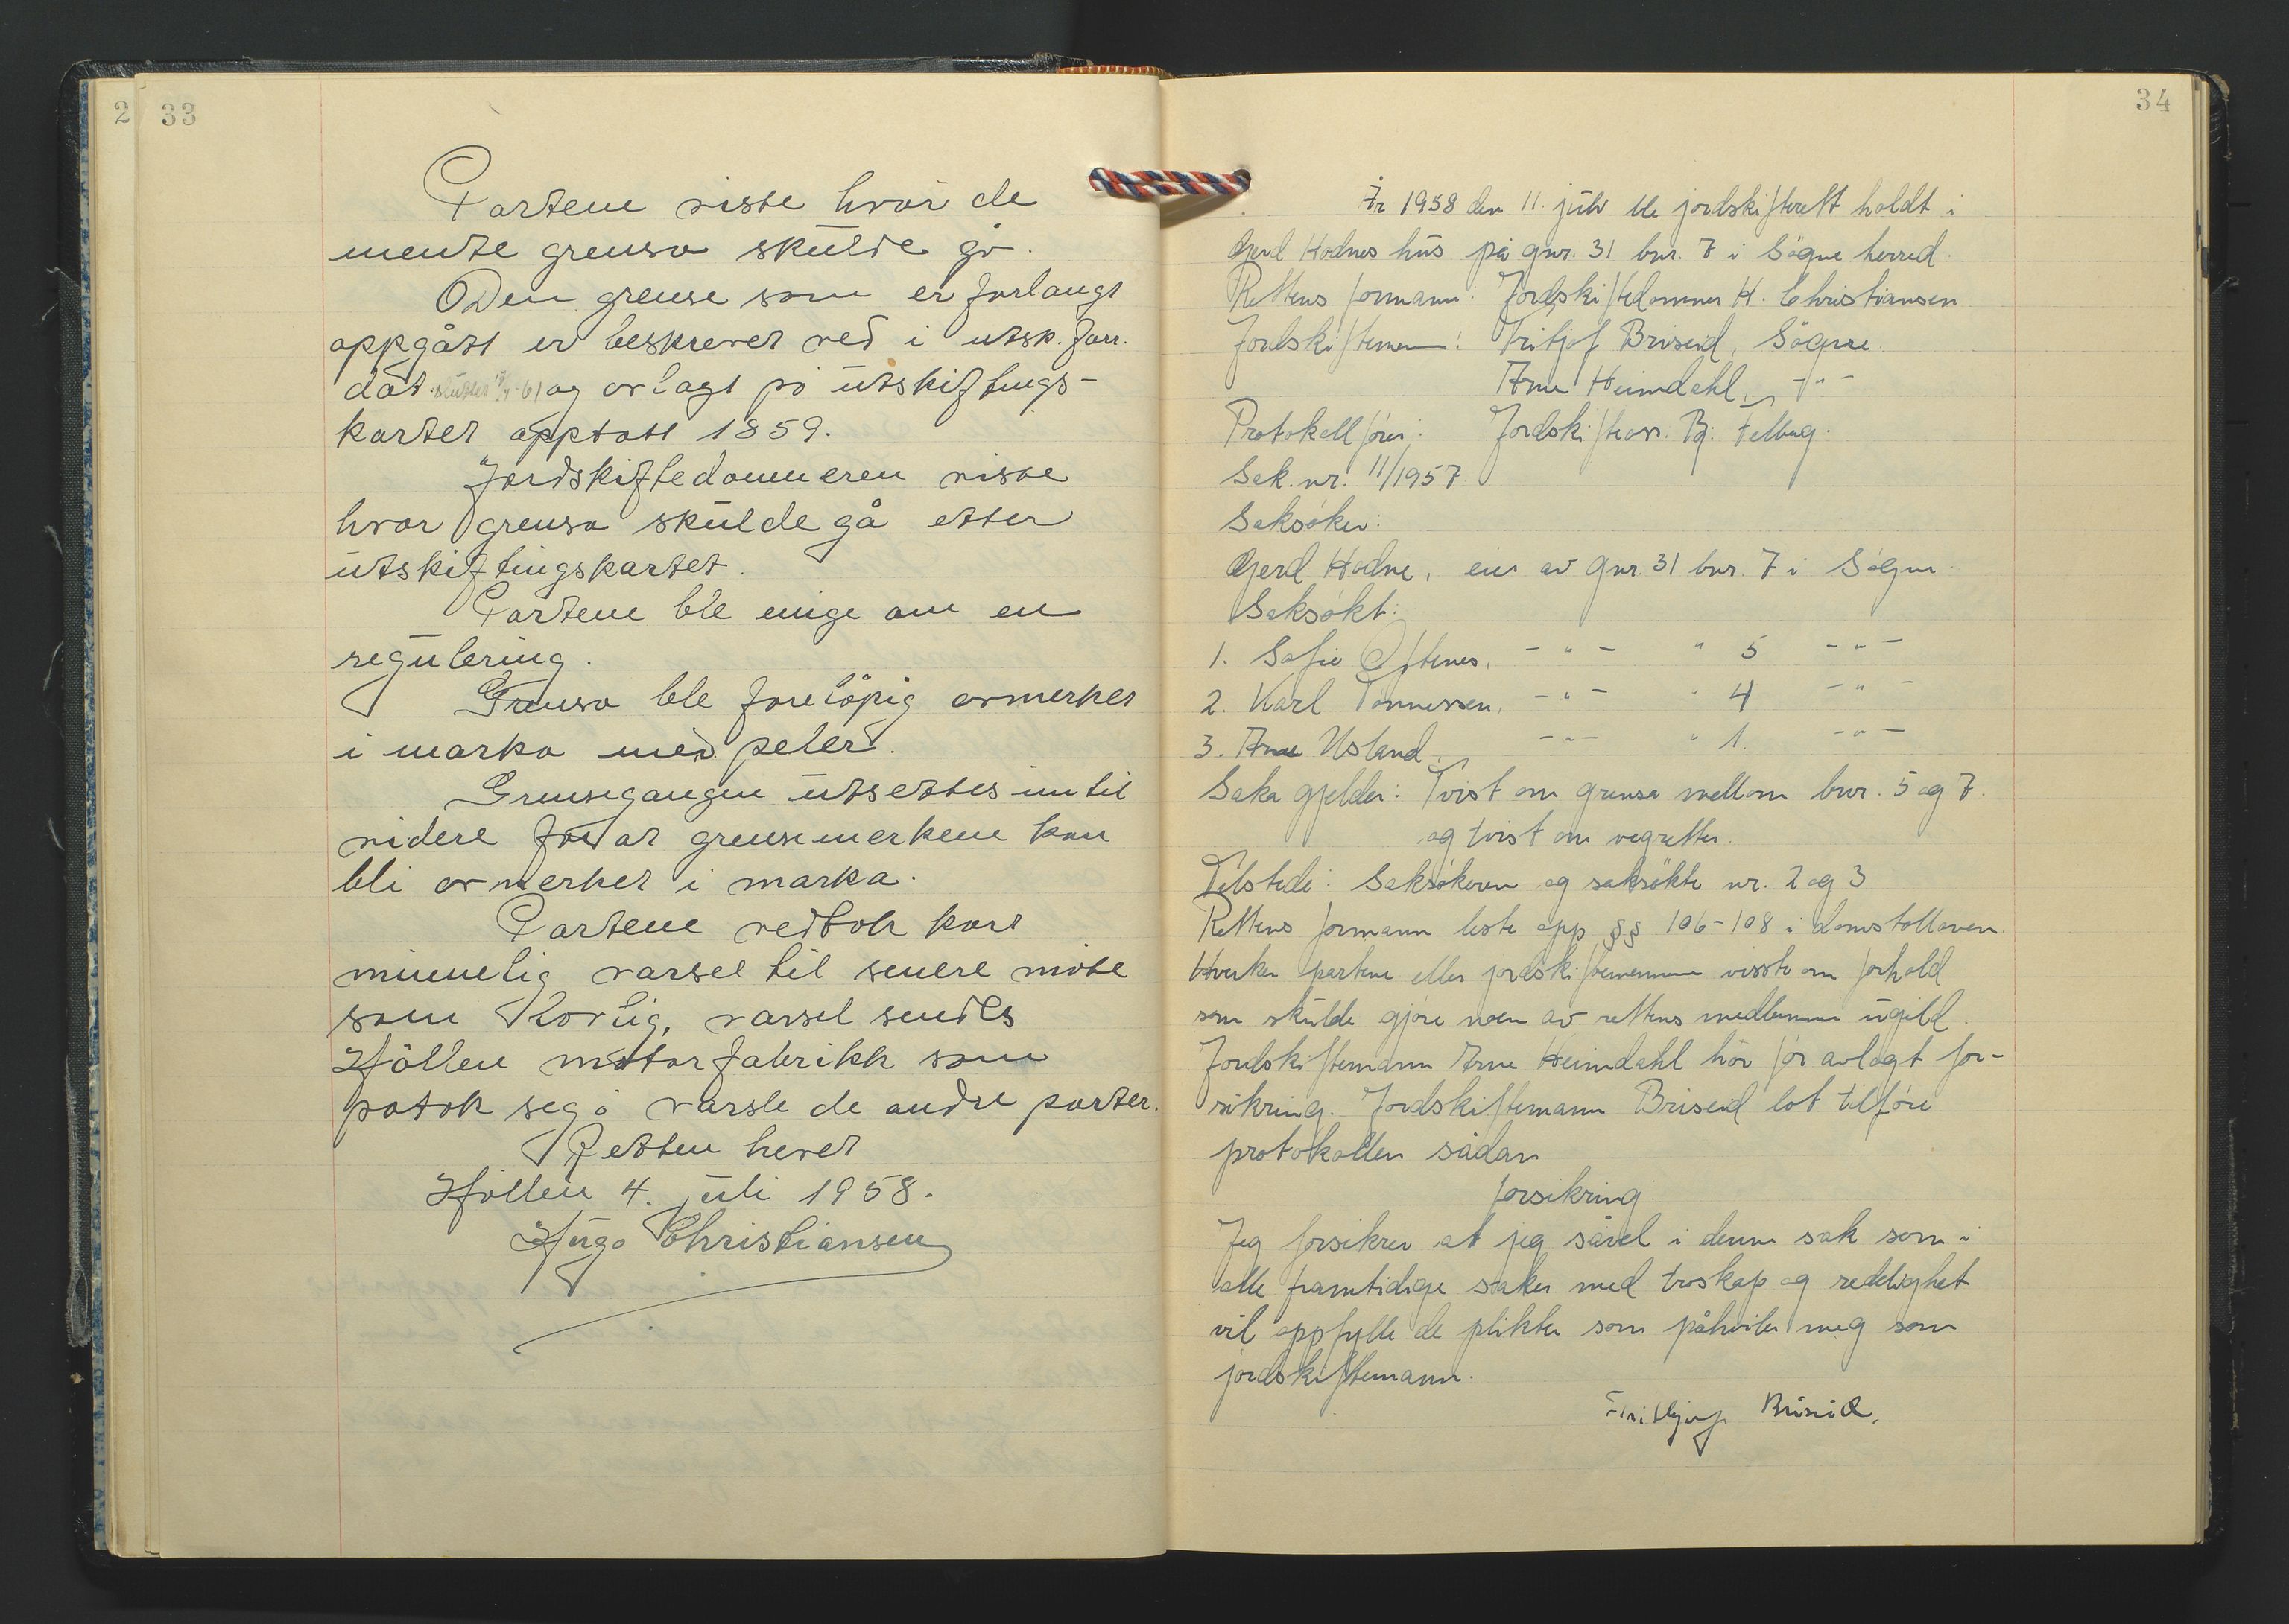 2 33
Partene viste hvor de
mente grensa skulde gå.
Den grense som er forlangt
oppgått er beskrevet ved i utsk. forr.
dat. sluttet og avlagt på utskiftings-
kartet opptatt 1859.
Jordskiftedommeren viste
hvor grensa skulde gå etter
utskiftingskartet.
Partene ble enige om en
regulering.
Grensa ble foreløpig avmerket
i marka med peler.
Grensegangen utsettes inntil
videre for at grensemerkene kan
bli avmerket i marka.
Partene vedtok kort
minnelig varsel til senere møte
som lovlig, varsel sendes
Höllen motorfabrikk som
påtok seg å varsle de andre parter.
Retten hevet
Höllen 4. juli 1958.
Hugo Christiansen
34
År 1958 den 11. juli ble jordskifterett holdt i
Gerd Hodnes hus på gnr. 31 bnr. 7 i Søgne herred.
Rettens formann: Jordskiftedommer H. Christiansen
Jordskiftemenn: Fritjof Briseid, Søgne.
Arne Heimdahl, -"-
Protokollfører: Jordskifteass. Bj.
Sak. nr. 11/1957.
Saksøker:
Gerd Hodne, eier av gnr. 31 bnr. 7 i Søgne.
Saksøkt:
1. Sofie Oftenes, -"- " 5 -"-
2. Karl Tønnessen, -"- " 4 -"-
3. Arne Usland, -"- " 1. -"-
Saka gjelder: Tvist om grensa mellom bnr. 5 og 7.
og tvist om vegretter.
Tilstede: Saksøkeren og saksøkte nr. 2 og 3
Rettens formann leste opp §§ 106-108 i domstolloven.
Hverken partene eller jordskiftemennene visste om forhold
som skulde gjøre noen av rettens medlemmer ugild.
Jordskiftemann Arne Heimdahl har før avlagt for-
sikring. Jordskiftemann Briseid lot tilføre
protokollen sådan
forsikring.
Jeg forsikrer at jeg såvel i denne sak som i
alle framtidige saker med troskap og redelighet
vil oppfylle de plikter som påhviler meg som
jordskiftemann.
Frithjof Briseid.